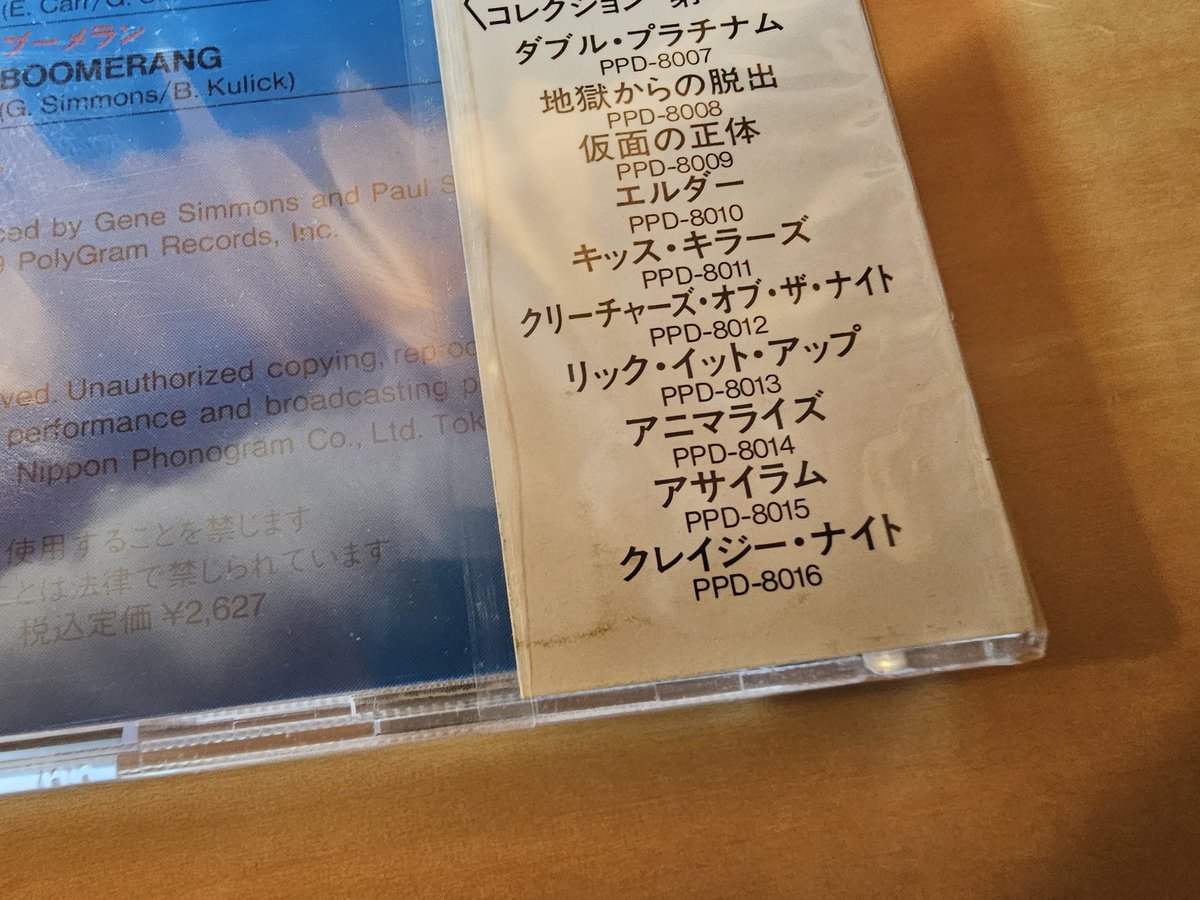 (E. Carr/G. S
ブーメラン
BOOMERANG
(G. Simmons/B. Kulick)
ced by Gene Simmons and Paul S
9 PolyGram Records, Inc.
ved. Unauthorized copying, reproc
performance and broadcasting p
Nippon Phonogram Co., Ltd. Tok
使用することを禁じます
ことは法律で禁じられています
税込定価 ¥2,627
〈コレクション 第
ダブル・プラチナム
PPD-8007
地獄からの脱出
PPD-8008
仮面の正体
PPD-8009
エルダー
PPD-8010
キッス・キラーズ
PPD-8011
クリーチャーズ・オブ・ザ・ナイト
PPD-8012
リック・イット・アップ
PPD-8013
アニマライズ
PPD-8014
アサイラム
PPD-8015
クレイジー・ナイト
PPD-8016